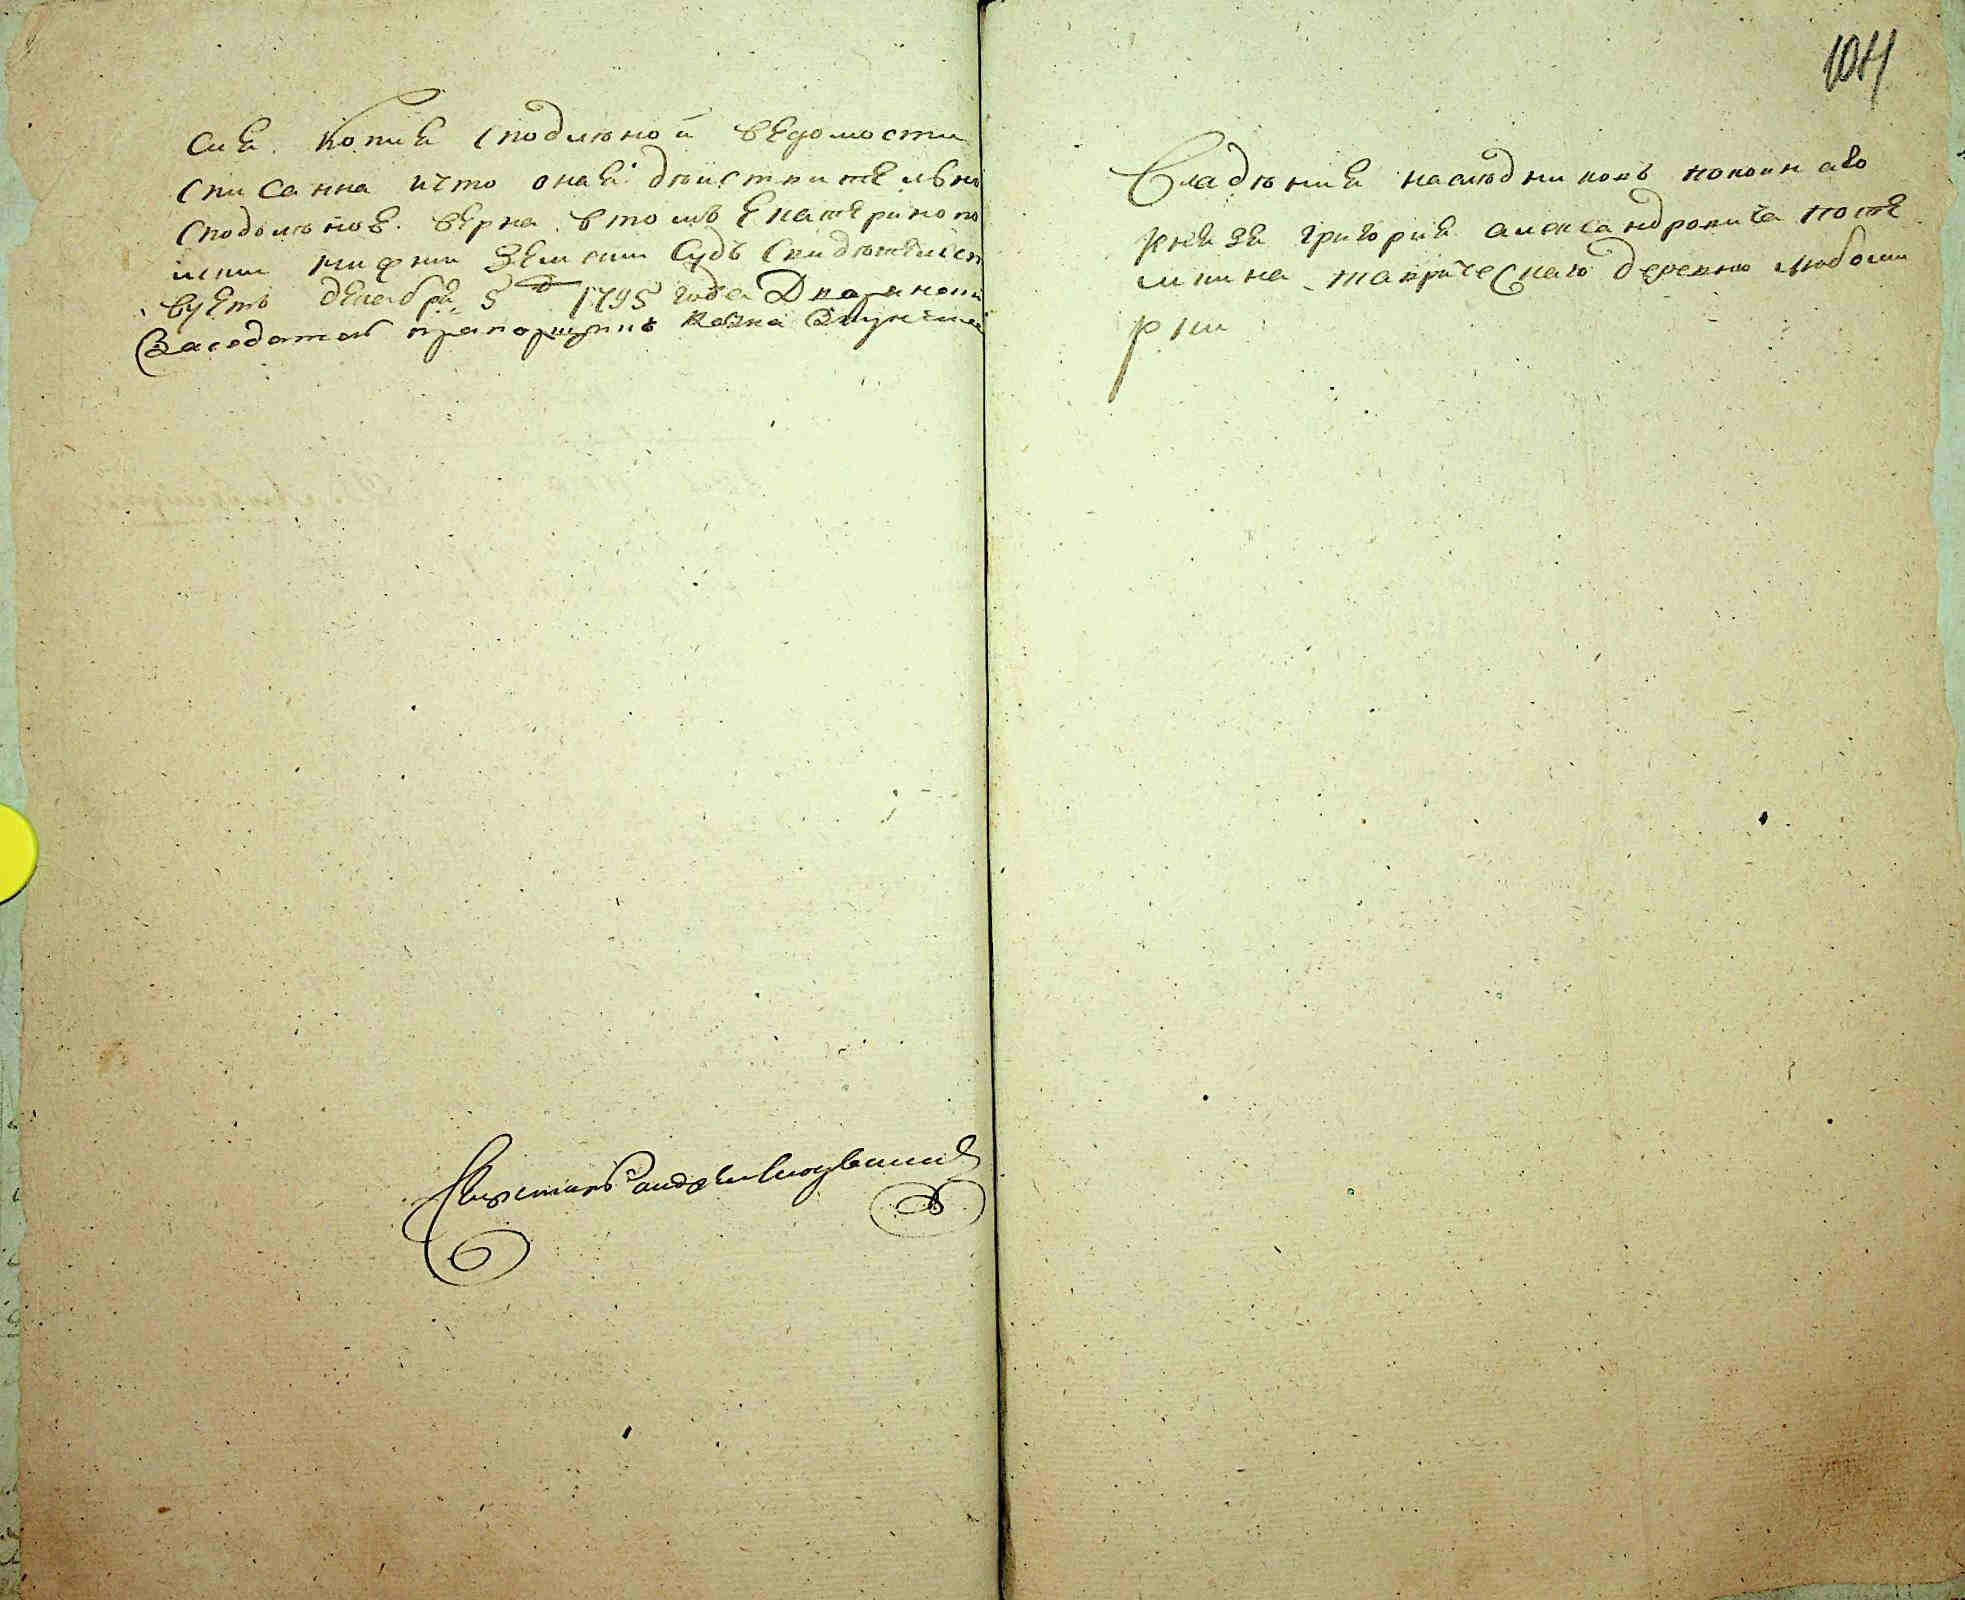 сия копия сподлѣной ведомости
списанна ичто оная дѣиствителвно
сподлѣнове верна втомъ екатеринопо
лски нижни земски Судъ свидѣтелст
вуетъ декабря 5 д 1795 года Дварански
Заседатель прапорщикъ
104
Владѣния наслѣдниковъ покоинаго
князя григория александровича поте
мкина таврическаго деревню любоми
рки